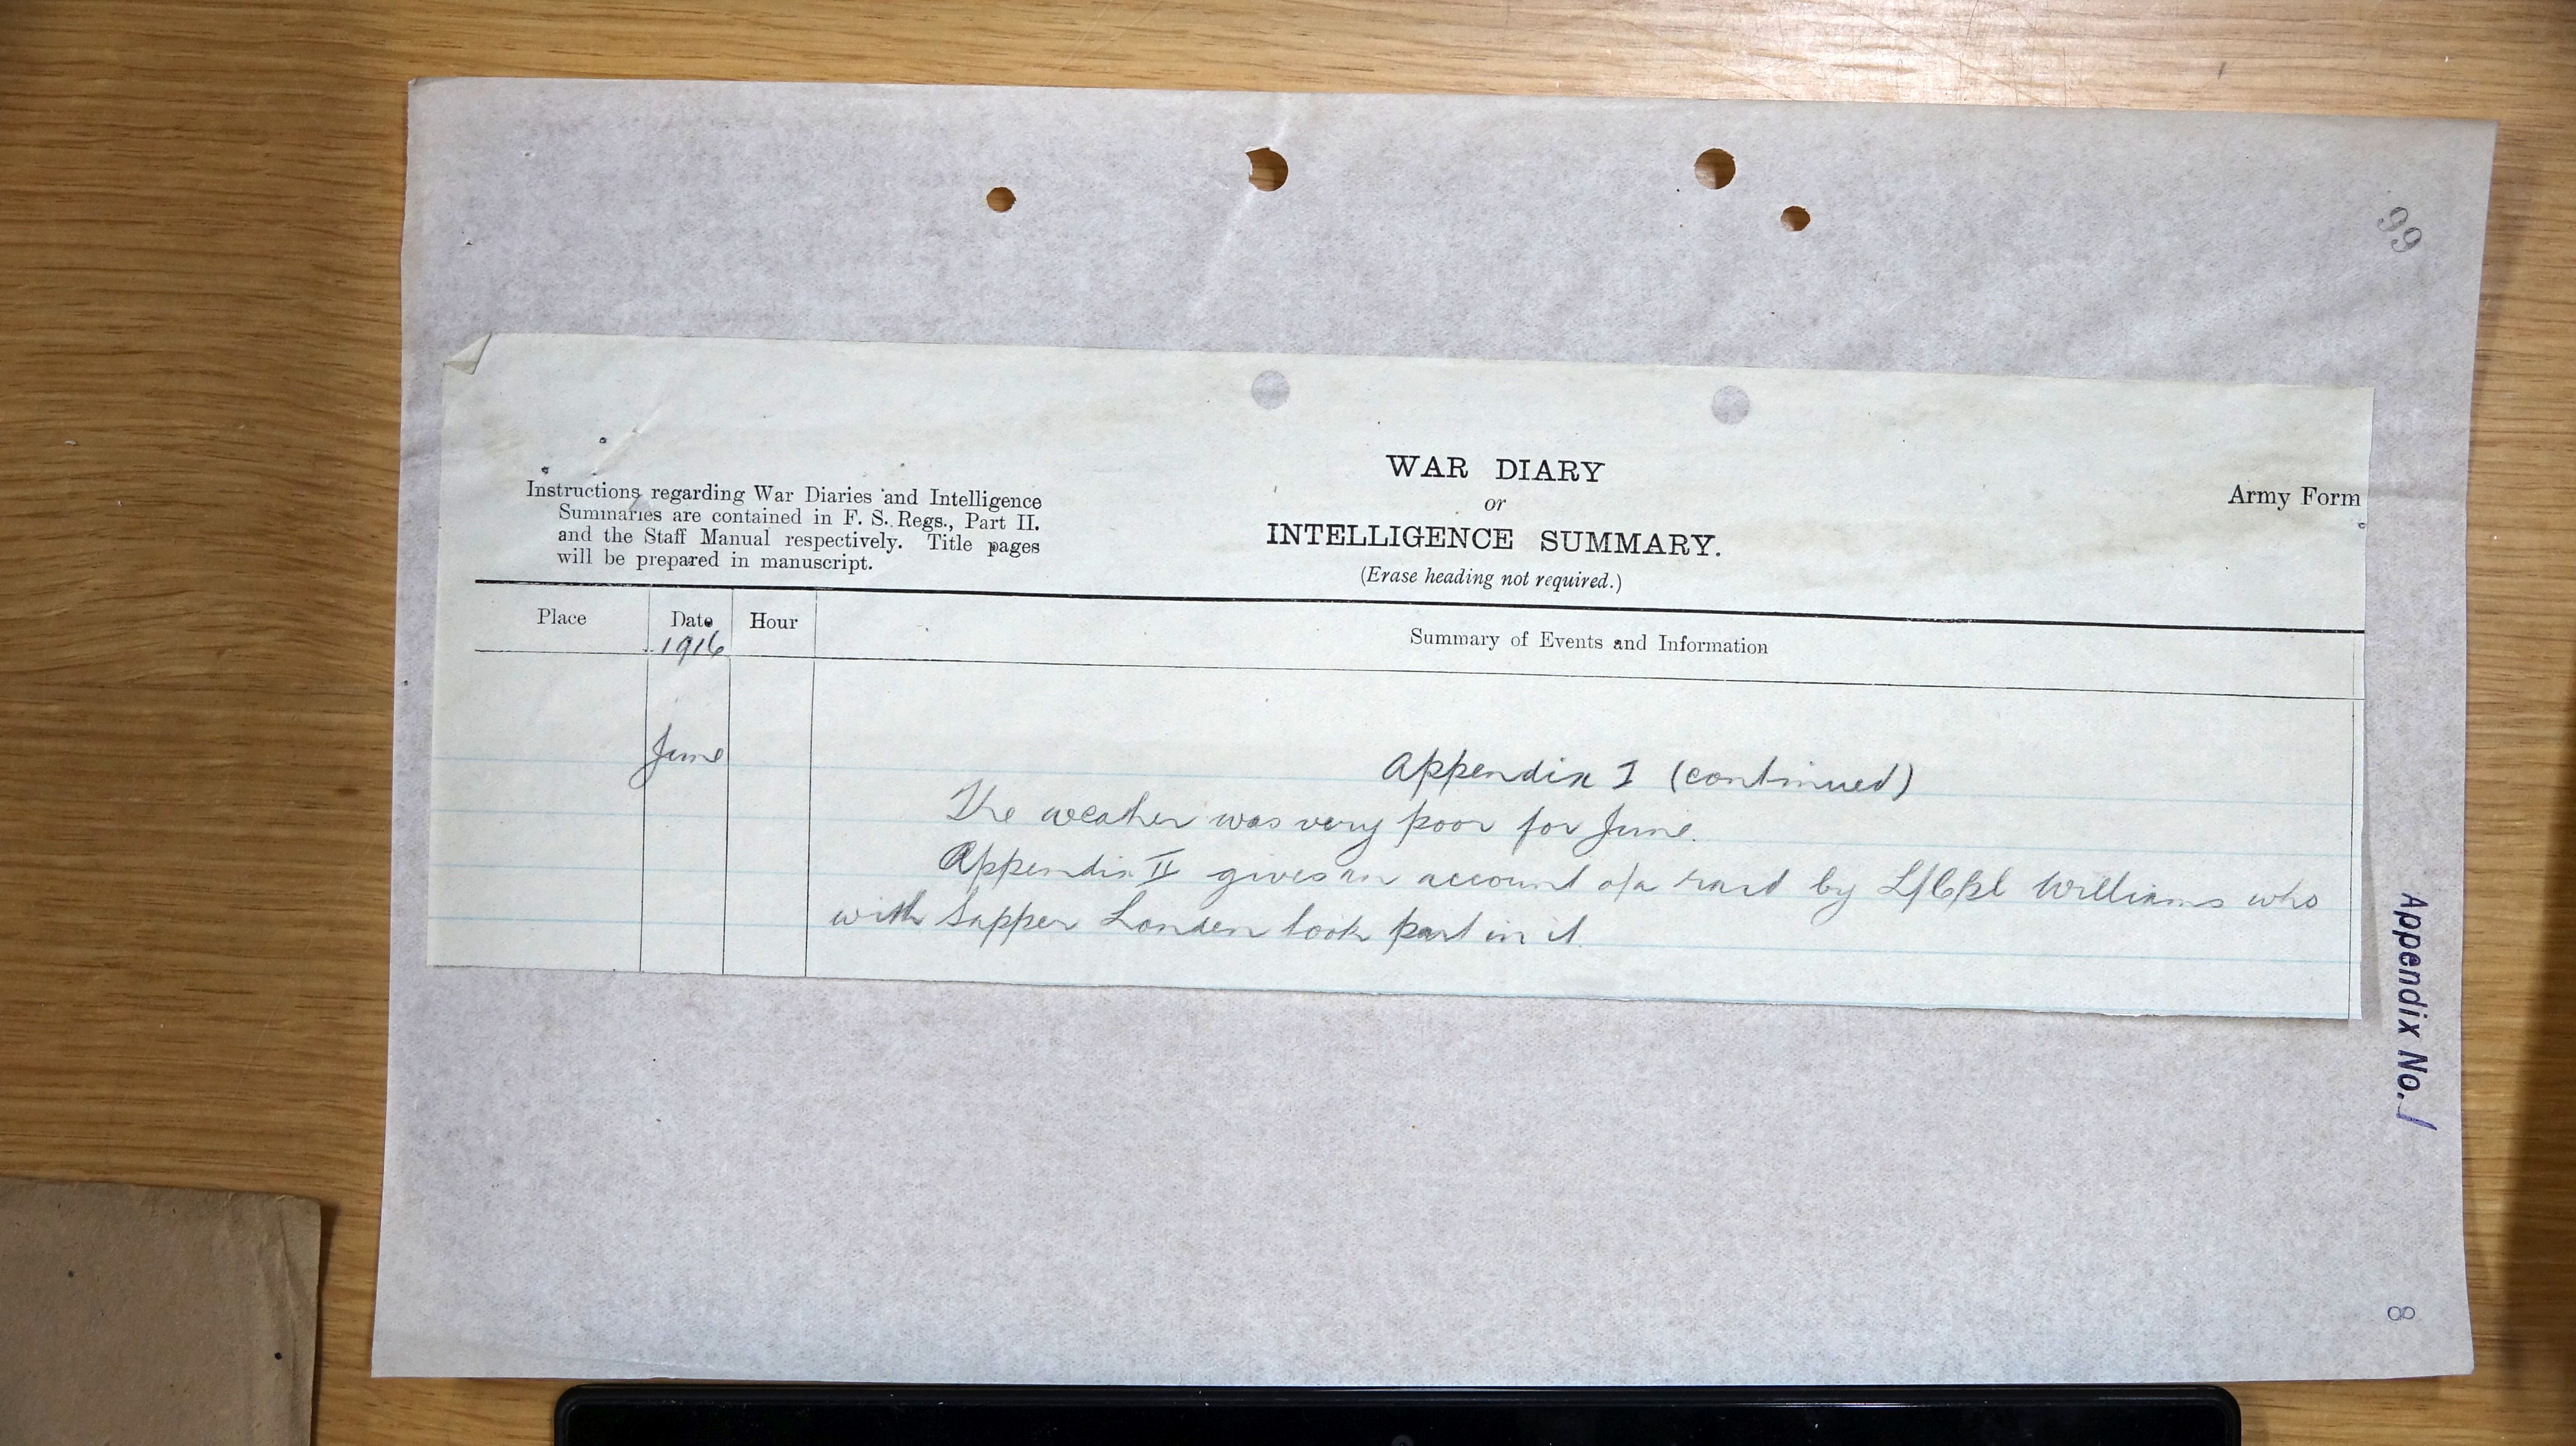 99
WAR DIARY
or
INTELLIGENCE SUMMARY.
(Erase heading not required.)
Army Form
Instructions regarding War Diaries and Intelligence
Summaries are contained in F. S. Regs., Part II.
and the Staff Manual respectively. Title pages
will be prepared in manuscript.
Place Date Hour Summary of Events and Information
1916
June
Appendix I (continued)
The weather was very poor for June.
Appendix II gives an account of a raid by L/Cpl Williams who
with Sapper Londen took part in it.
Appendix No. 1
8